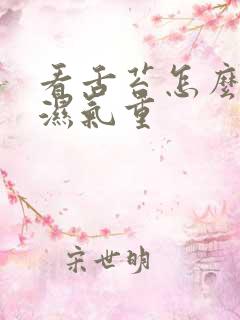 看舌苔怎麼
濕氣重
宋世明